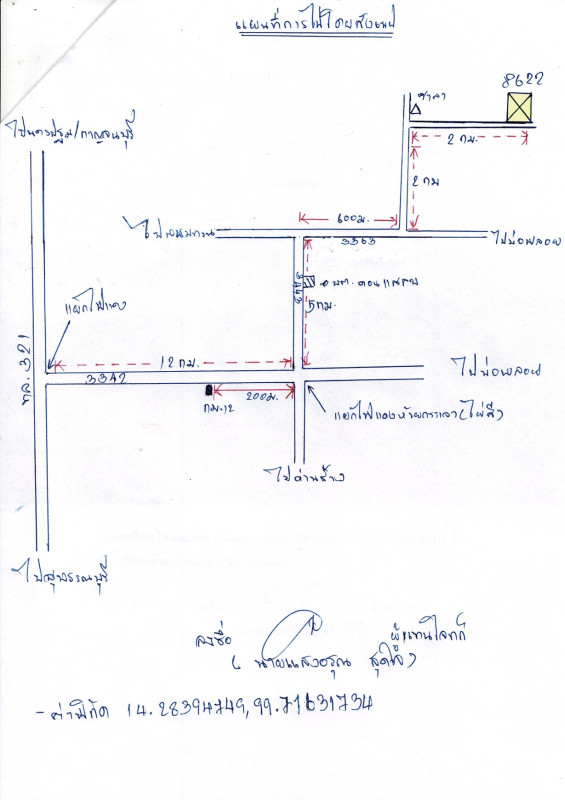 แผนที่การไปโดยสังเขป
8622
ศาลา
ไปนครปฐม/กาญจนบุรี
2 กม.
2 กม
600ม.
ไปพนมทวน
3363
ไปบ่อพลอย
3443
อบต. ดอนแสลบ
5กม.
แยกไฟแดง
12 กม.
ทล. 321
3342
ไปบ่อพลอย
กม.12
200ม.
แยกไฟแดงห้วยกระเจา (ไผ่สี)
ไปด่านช้าง
ไปสุพรรณบุรี
ลงชื่อ ผู้แทนโจทก์
( นายแสงอรุณ สุดใจ )
- ค่าพิกัด 14.28394749,99.71631734